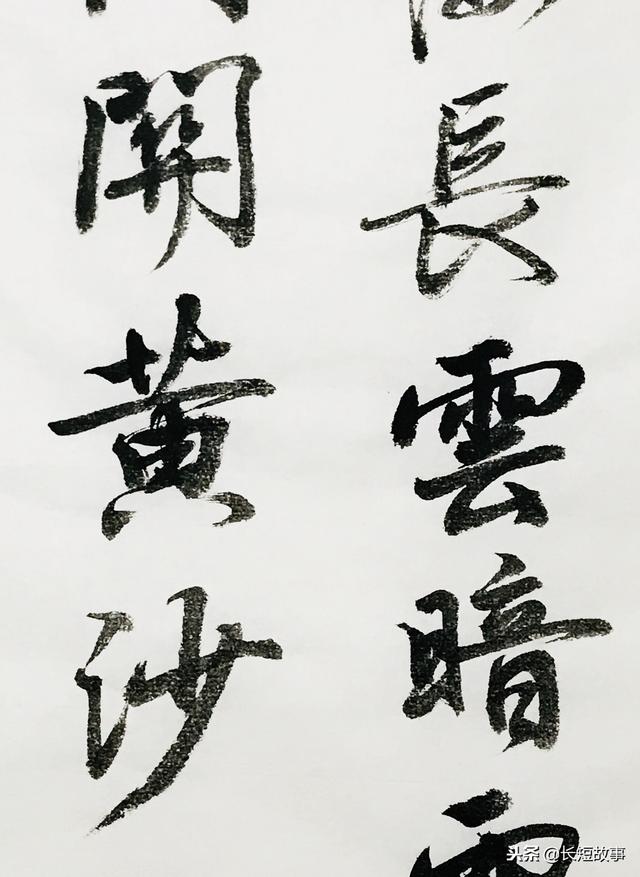 長雲暗
關黃沙
头条 @长短故事